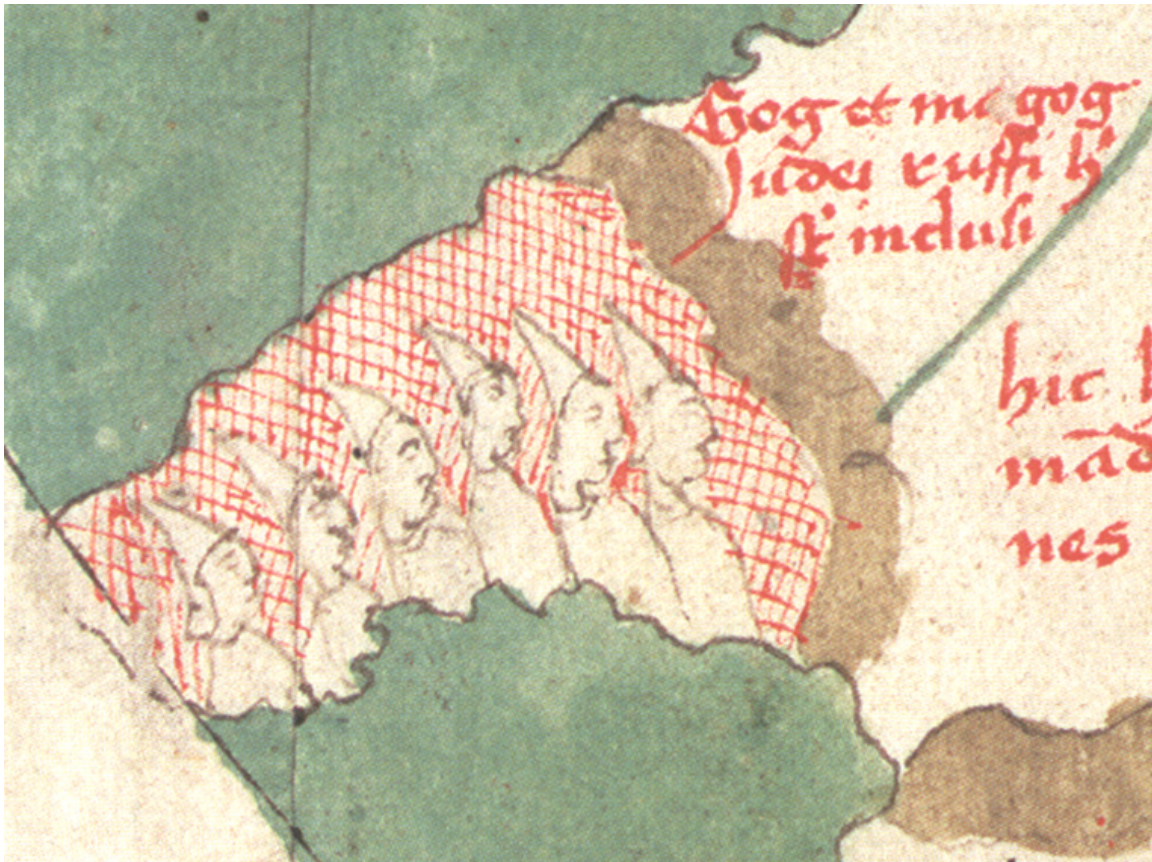 Gog et magog
iudei ruffi h̄
st̄ inclusi
hic
mad
nes